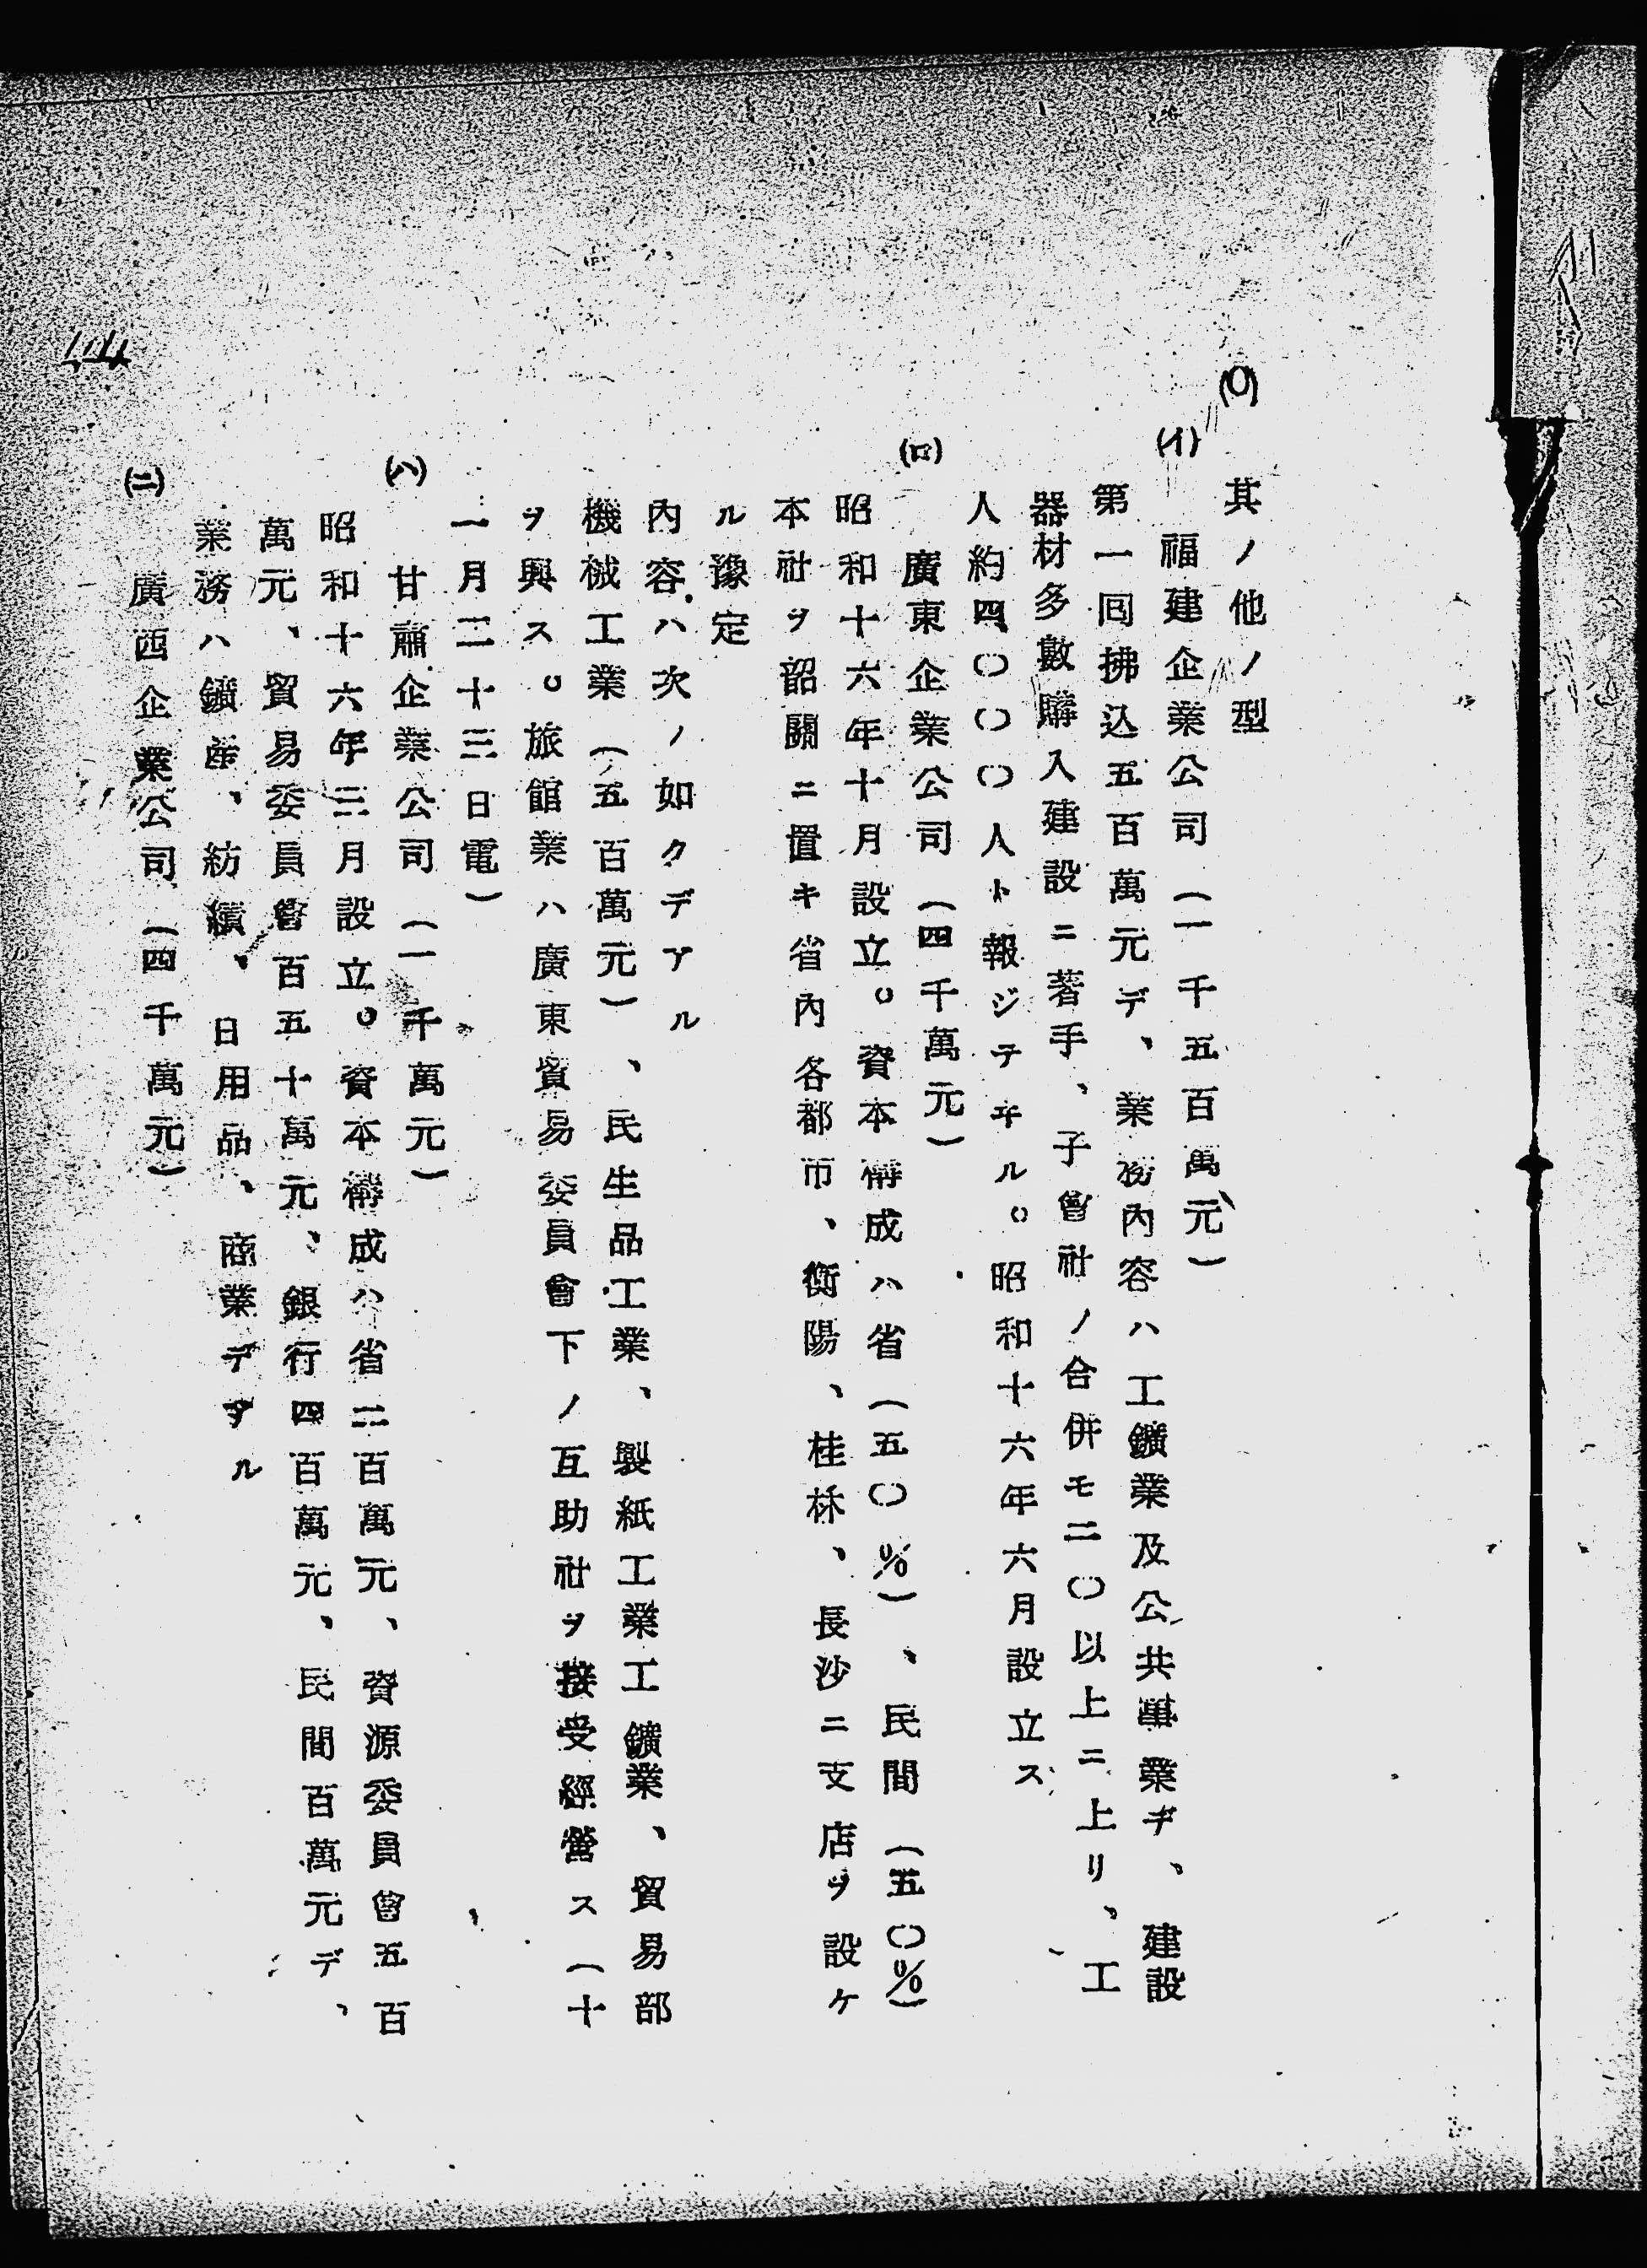 (〇) 其ノ他ノ型
(イ) 福建企業公司(一千五百萬元)
第一囘拂込五百萬元デ、業務內容ハ工鑛業及公共事業デ、建設
器材多數購入建設ニ著手、子會社ノ合併モ二〇以上ニ上リ、工
人約四、〇〇〇人ト報ジテヰル。昭和十六年六月設立ス
(ロ) 廣東企業公司(四千萬元)
昭和十六年十月設立。資本構成ハ省(五〇%)、民間(五〇%)
本社ヲ韶關ニ置キ省內各都市、衡陽、桂林、長沙ニ支店ヲ設ケ
ル豫定
內容ハ次ノ如クデアル
機械工業(五百萬元)、民生品工業、製紙工業工鑛業、貿易部
ヲ興ス。旅館業ハ廣東貿易委員會下ノ互助社ヲ接受經營ス(十
一月二十三日電)
(ハ) 甘肅企業公司(一千萬元)
昭和十六年三月設立。資本構成ハ省二百萬元、資源委員會五百
萬元、貿易委員會百五十萬元、銀行四百萬元、民間百萬元デ、
業務ハ鑛産、紡績、日用品、商業デアル
(ニ) 廣西企業公司(四千萬元)